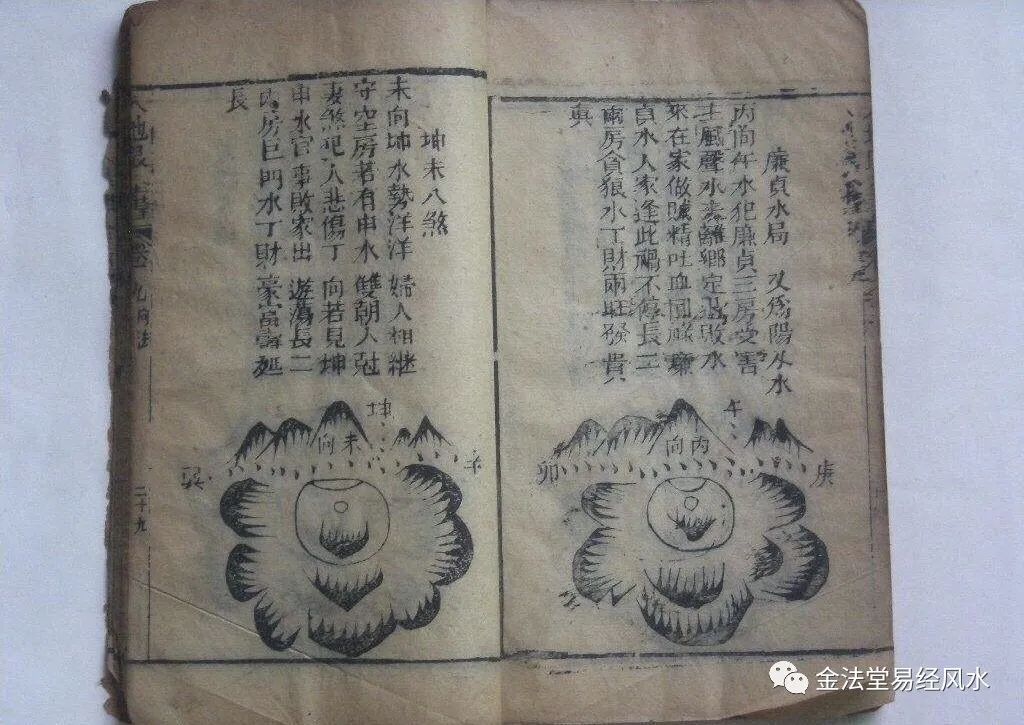 廉貞水局 又爲陽水
丙向午水犯廉貞三房受害
主風聲水離鄉定退敗水
來在家做賊精吐血回祿廉
貞水人家逢此禍不停長二
兩房貪狼水丁財兩旺發貴
眞
午
丙向
卯
庚
坤未八煞
未向坤水勢洋洋 婦人相繼
守空房著有申水 雙朝入尅
妻煞犯人悲傷丁 向若見坤
申水官事敗家出 遊蕩長二
房巨門水丁財 豪富壽延
長
坤
未向
巽
九向法
二十九
金法堂易经风水